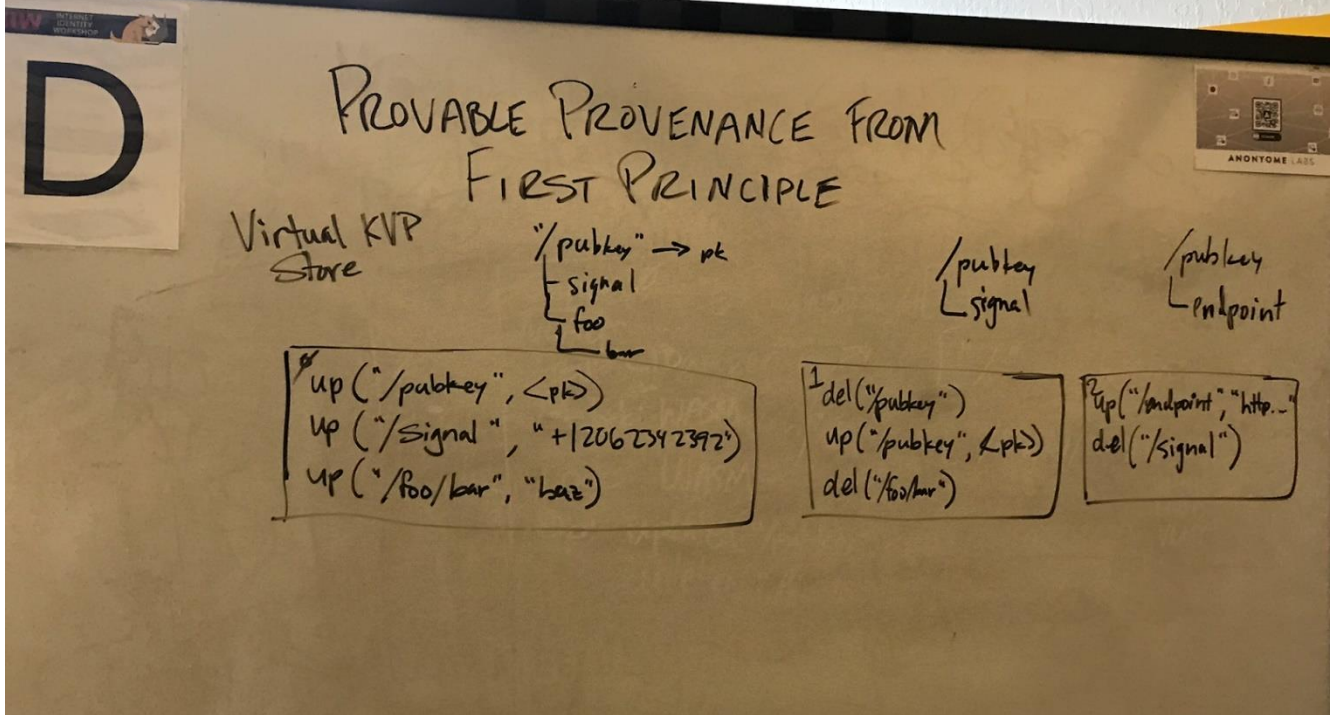 IIW INTERNET
IDENTITY
WORKSHOP
D
PROVABLE PROVENANCE FROM
FIRST PRINCIPLE
ANONYOME LABS
Virtual KVP
Store
"/pubkey" → pk
signal
foo
bar
/pubkey
signal
/pubkey
endpoint
0
up("/pubkey", <pk>)
up("/signal", "+12062342392")
up("/foo/bar", "baz")
1
del("/pubkey")
up("/pubkey", <pk>)
del("/foo/bar")
2
up("/endpoint", "http..."
del("/signal")